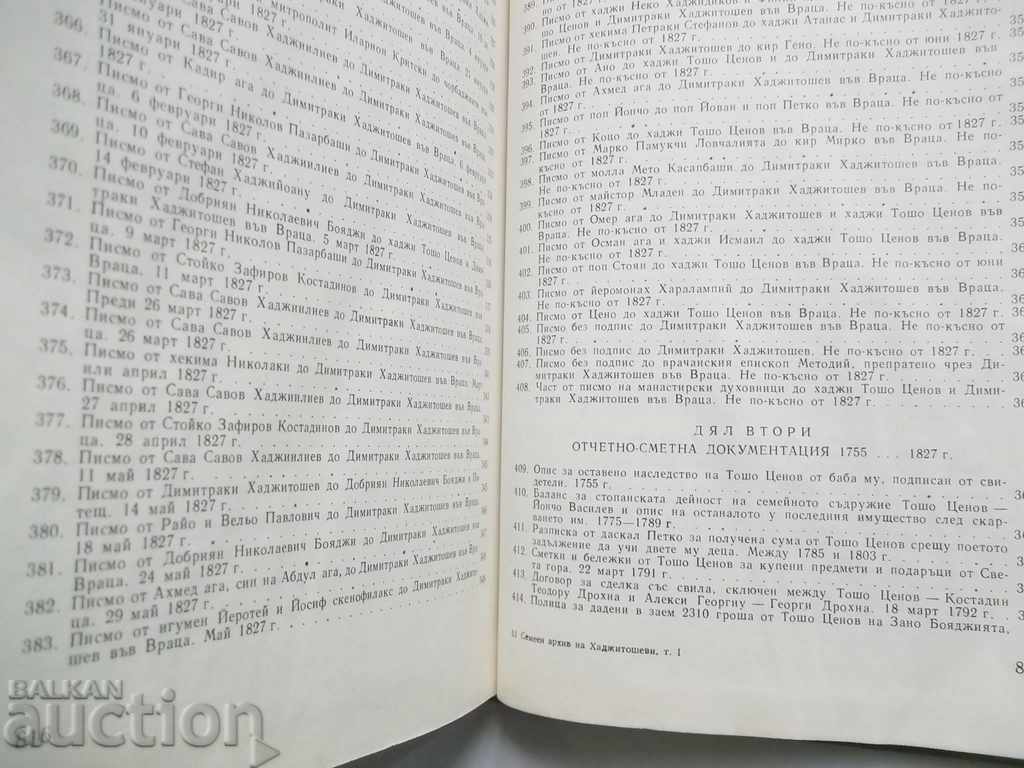 366.
митрополит Иларион Критски до чорбаджи
31 януари 1827 г.
367. Писмо от Сава Савов Хаджиилиев до Димитраки Хаджитошев във Враца.
1827 г.
368. Писмо от Кадир ага до Димитраки Хаджитошев във Враца. 6 февруари
Писмо от Георги Николов Пазарбаши до Димитраки Хаджитошев във Вра-
ца. 6 февруари 1827 г.
369. Писмо от Сава Савов Хаджиилиев до Димитраки Хаджитошев във Вра-
ца. 10 февруари 1827 г.
370. Писмо от Стефан Хаджийоану до Димитраки Хаджитошев
14 февруари 1827 г.
371. Писмо от Добриян Николаевич Бояджи до хаджи Тошо Ценов и Дими-
траки Хаджитошев във Враца. 5 март 1827 г.
372. Писмо от Георги Николов Пазарбаши до Димитраки Хаджитошев във Вра-
ца. 9 март 1827 г.
373. Писмо от Стойко Зафиров Костадинов до Димитраки Хаджитошев във
Враца. 11 март 1827 г.
374. Писмо от Сава Савов Хаджиилиев до Димитраки Хаджитошев във Враца.
Преди 26 март 1827 г.
375. Писмо от Сава Савов Хаджиилиев до Димитраки Хаджитошев във Вра-
ца. 26 март 1827 г.
376. Писмо от хекима Николаки до Димитраки Хаджитошев във Враца. Март
или април 1827 г.
377. Писмо от Сава Савов Хаджиилиев до Димитраки Хаджитошев във Враца.
27 април 1827 г.
378. Писмо от Стойко Зафиров Костадинов до Димитраки Хаджитошев във Вра-
ца. 28 април 1827 г.
379. Писмо от Сава Савов Хаджиилиев до Димитраки Хаджитошев във Враца.
11 май 1827 г.
380. Писмо от Димитраки Хаджитошев до Добриян Николаевич Бояджи в Пи-
тещ. 14 май 1827 г.
381. Писмо от Райо и Вельо Павлович до Димитраки Хаджитошев във Враца.
18 май 1827 г.
382. Писмо от Добриян Николаевич Бояджи до Димитраки Хаджитошев във
Враца. 24 май 1827 г.
383. Писмо от Ахмед ага, син на Абдул ага, до Димитраки Хаджитошев във Вра-
ца. 29 май 1827 г.
Писмо от игумен Йеротей и Йосиф скенофилакс до Димитраки Хаджито-
шев във Враца. Май 1827 г.
816
Писмо от хаджи Неко Хаджидиков и
шо Ценов и Димитраки Хаджитошев във Враца. Не по-късно от 1827 г.
Писмо от хекима Петраки Стефанов до хаджи Атанас и Димитраки Хаджито-
шев. Не по-късно от 1827 г.
392. Писмо от Димитраки Хаджитошев до кир Гено. Не по-късно от юни 1827 г.
393. Писмо от Ано до хаджи Тошо Ценов и до Димитраки Хаджитошев във
Враца. Не по-късно от 1827 г.
394. Писмо от Ахмед ага до Димитраки Хаджитошев във Враца. Не по-късно
от 1827 г.
395. Писмо от поп Йончо до поп Йован и поп Петко във Враца. Не по-късно от
1827 г.
396. Писмо от Коцо до хаджи Тошо Ценов във Враца. Не по-късно от 1827 г.
397. Писмо от Марко Памукчи Ловчалията до кир Мирко във Враца. Не по-
късно от 1827 г.
398. Писмо от молла Мето Касапбаши до Димитраки Хаджитошев във Враца.
Не по-късно от 1827 г.
399. Писмо от майстор Младен до Димитраки Хаджитошев във Враца. Не по-
късно от 1827 г.
400. Писмо от Омер ага до Димитраки Хаджитошев и хаджи Тошо Ценов във
Враца. Не по-късно от 1827 г.
401. Писмо от Осман ага и хаджи Исмаил до хаджи Тошо Ценов във Враца.
Не по-късно от 1827 г.
402. Писмо от поп Стоян до хаджи Тошо Ценов във Враца. Не по-късно от юни
1827 г.
403. Писмо от йеромонах Харалампий до Димитраки Хаджитошев във Враца.
Не по-късно от 1827 г.
404. Писмо от Цено до хаджи Тошо Ценов във Враца. Не по-късно от 1827 г.
405. Писмо без подпис до Димитраки Хаджитошев във Враца. Не по-късно от
1827 г.
406. Писмо без подпис до Димитраки Хаджитошев. Не по-късно от 1827 г.
407. Писмо без подпис до врачанския епископ Методий, препратено чрез Ди-
митраки Хаджитошев във Враца. Не по-късно от 1827 г.
408. Част от писмо на манастирски духовници до хаджи Тошо Ценов и Дими-
траки Хаджитошев във Враца. Не по-късно от 1827 г.
ДЯЛ ВТОРИ
ОТЧЕТНО-СМЕТНА ДОКУМЕНТАЦИЯ 1755 ... 1827 г.
409. Опис за оставено наследство на Тошо Ценов от баба му, подписан от сви-
детели. 1755 г.
410. Баланс за стопанската дейност на семейното съдружие Тошо Ценов —
Йончо Василев и опис на останалото у последния имущество след скар-
ването им. 1775—1789 г.
411. Разписка от даскал Петко за получена сума от Тошо Ценов срещу поетото
задължение да учи двете му деца. Между 1785 и 1803 г.
412. Сметки и бележки от Тошо Ценов за купени предмети и подаръци от Све-
та гора. 22 март 1791 г.
413. Договор за сделка със свила, сключен между Тошо Ценов — Костадин
Теодору Дрохна и Алекси Георгиу — Георги Дрохна. 18 март 1792 г.
414. Полица за дадени в заем 2310 гроша от Тошо Ценов на Зано Бояджията,
51 Семеен архив на Хаджитошеви, т. I
BALKAN
auction